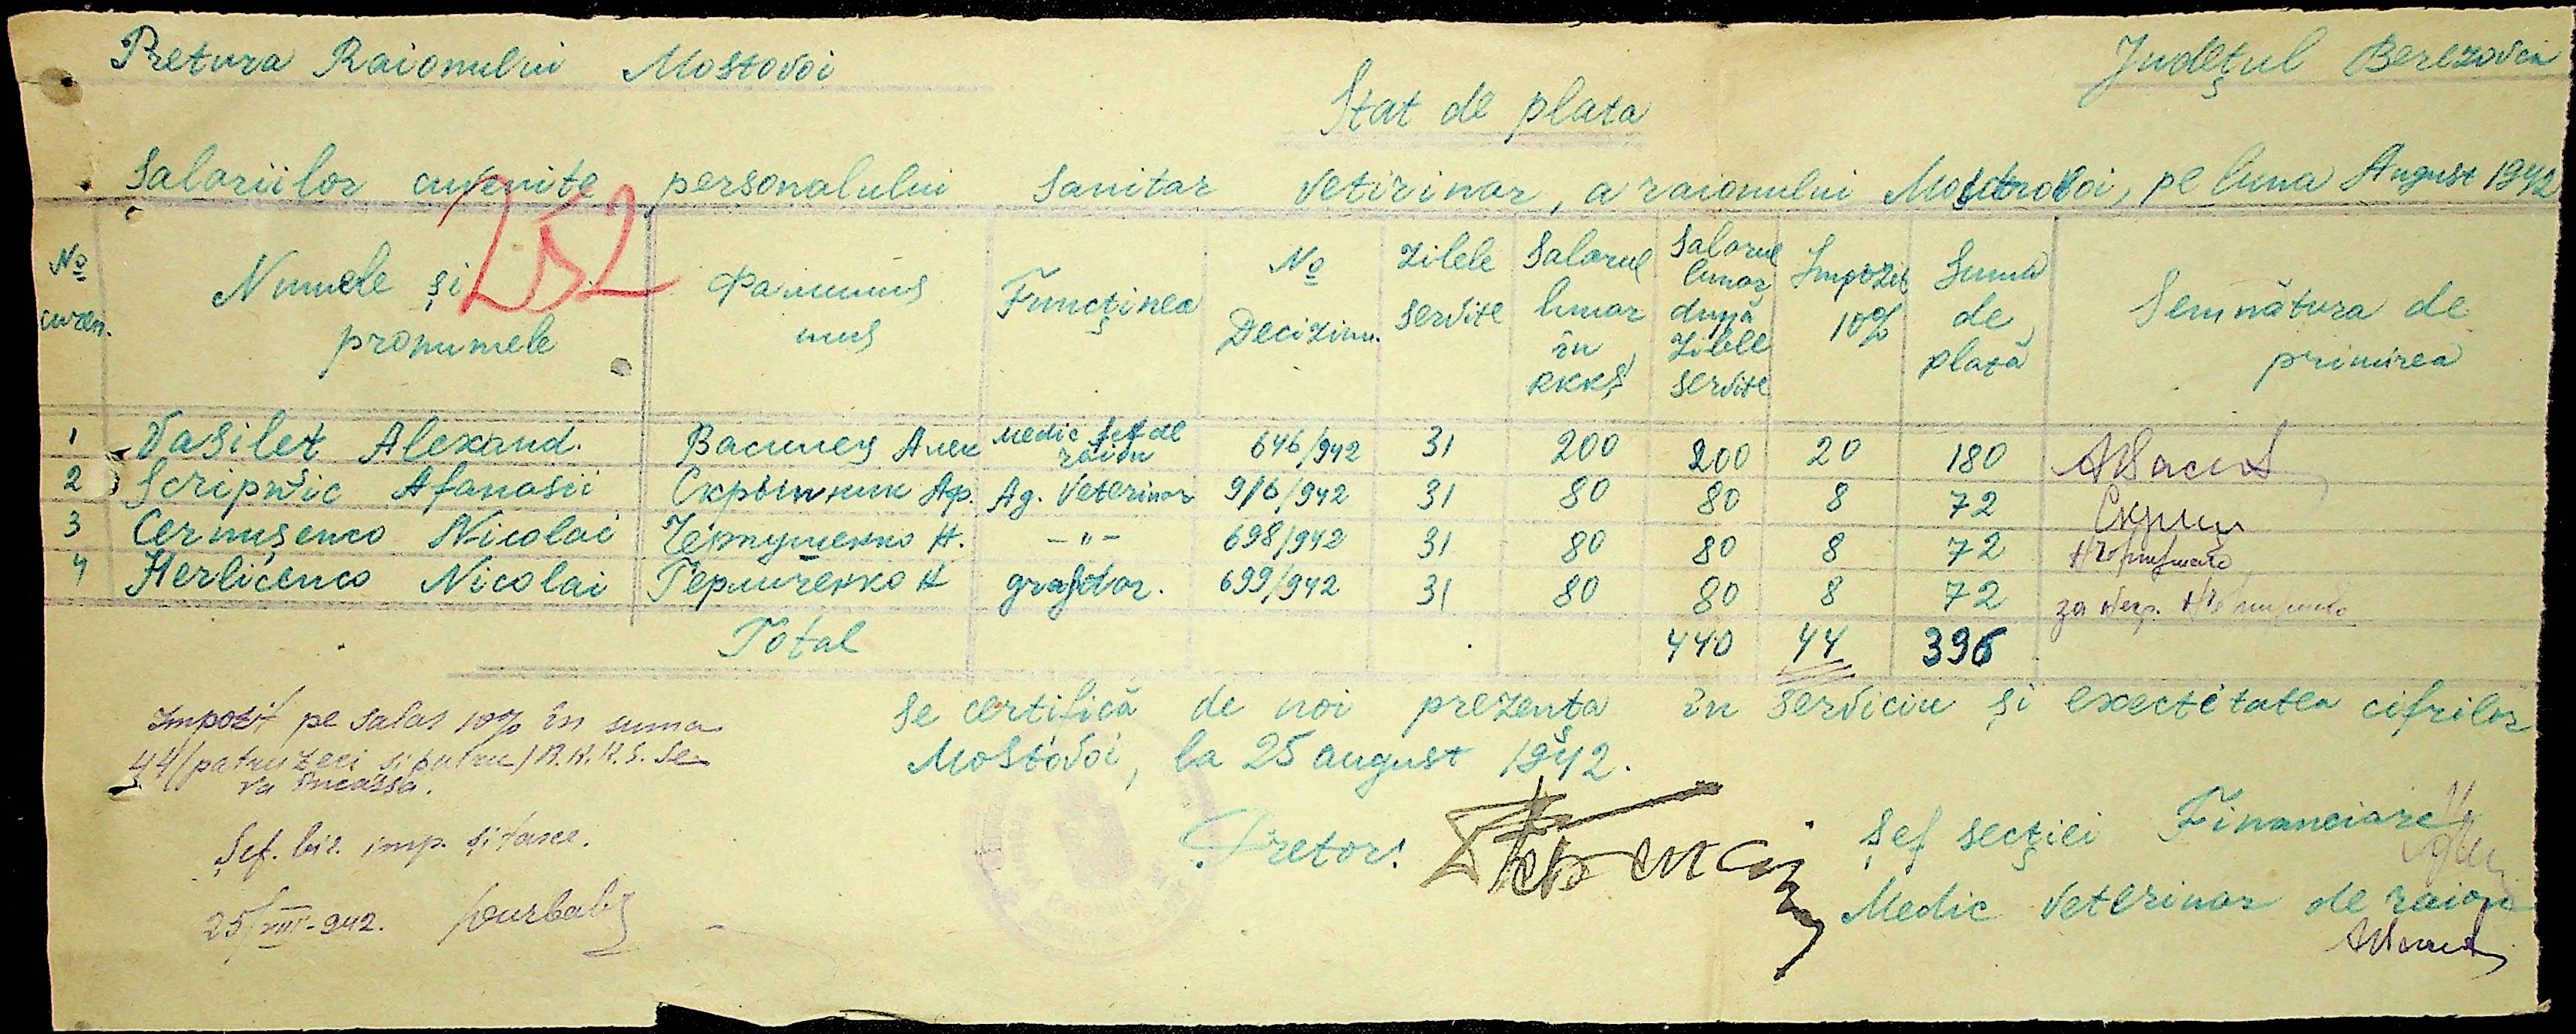 Pretura Raionului Mostovoi
Județul Berezovca
Stat de plata
Salariilor cuvenite personalului Sanitar Vetirinar, a raionului Mostovoi, pe luna August 1942
252
No curen. Numele și pronumele Функținea No Deciziun. Zilele servite Salarul lunar în RKKS Salarul lunar după zilele servite Impozit 10% Suma de plată Semnătura de primirea
1 Vasileț Alexand. Василец Алек Medic șef de raion 646/942 31 200 200 20 180
2 Scripnic Afanasii Скрыпник Аф. Ag. Veterinar 916/942 31 80 80 8 72 Скрип
3 Cernușenco Nicolai Чернушенко Н. -"- 698/942 31 80 80 8 72
4 Herlicenco Nicolai Герличенко Н 699/942 31 80 80 8 72 за
Total 440 44 396
Impozit pe salar 10% în suma
44 (patruzeci și patru) R.K.K.S. Se
va încassa.
Șef. bir. imp. și taxe.
25/VIII-942.
Se certifică de noi prezenta în serviciu și exectitatea cifrilor
Mostovoi, la 25 august 1942.
Pretor.
Șef secției Financiare
Medic Veterinar de raion